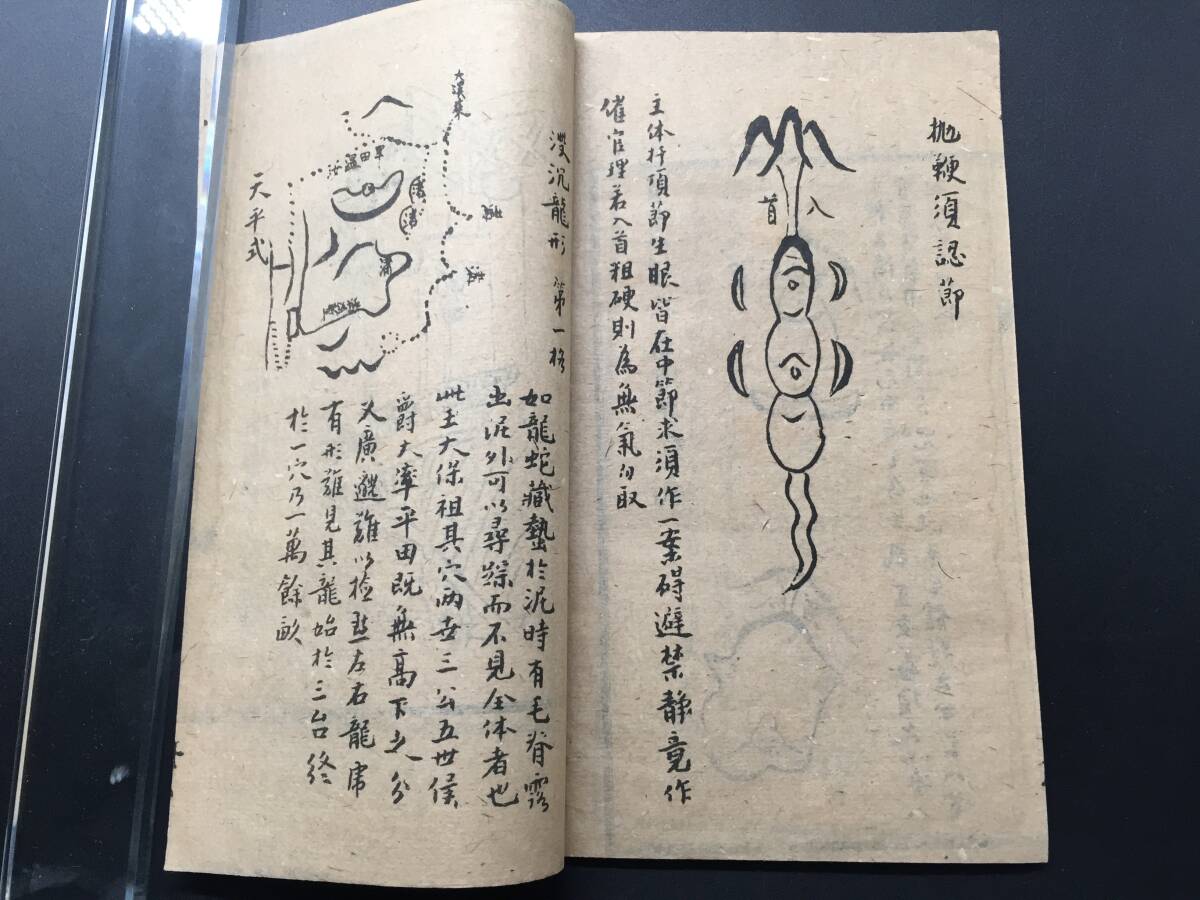 抛鞭須認節
入首
主体扦項節生眼皆在中節求須作一案碍避禁静竟作
催官理若入首粗硬則為無氣勿取
没沉龍形 第一格
大溪來
旱田
天平式
如龍蛇藏蟄於泥時有毛脊露
出泥外可以尋踪而不見全体者也
此主大保祖其穴兩世三公五世侯
爵大率平田既無高下之分
又廣邈難以检点左右龍虎
有形難見其龍始於三台終
於一穴乃一萬餘畝